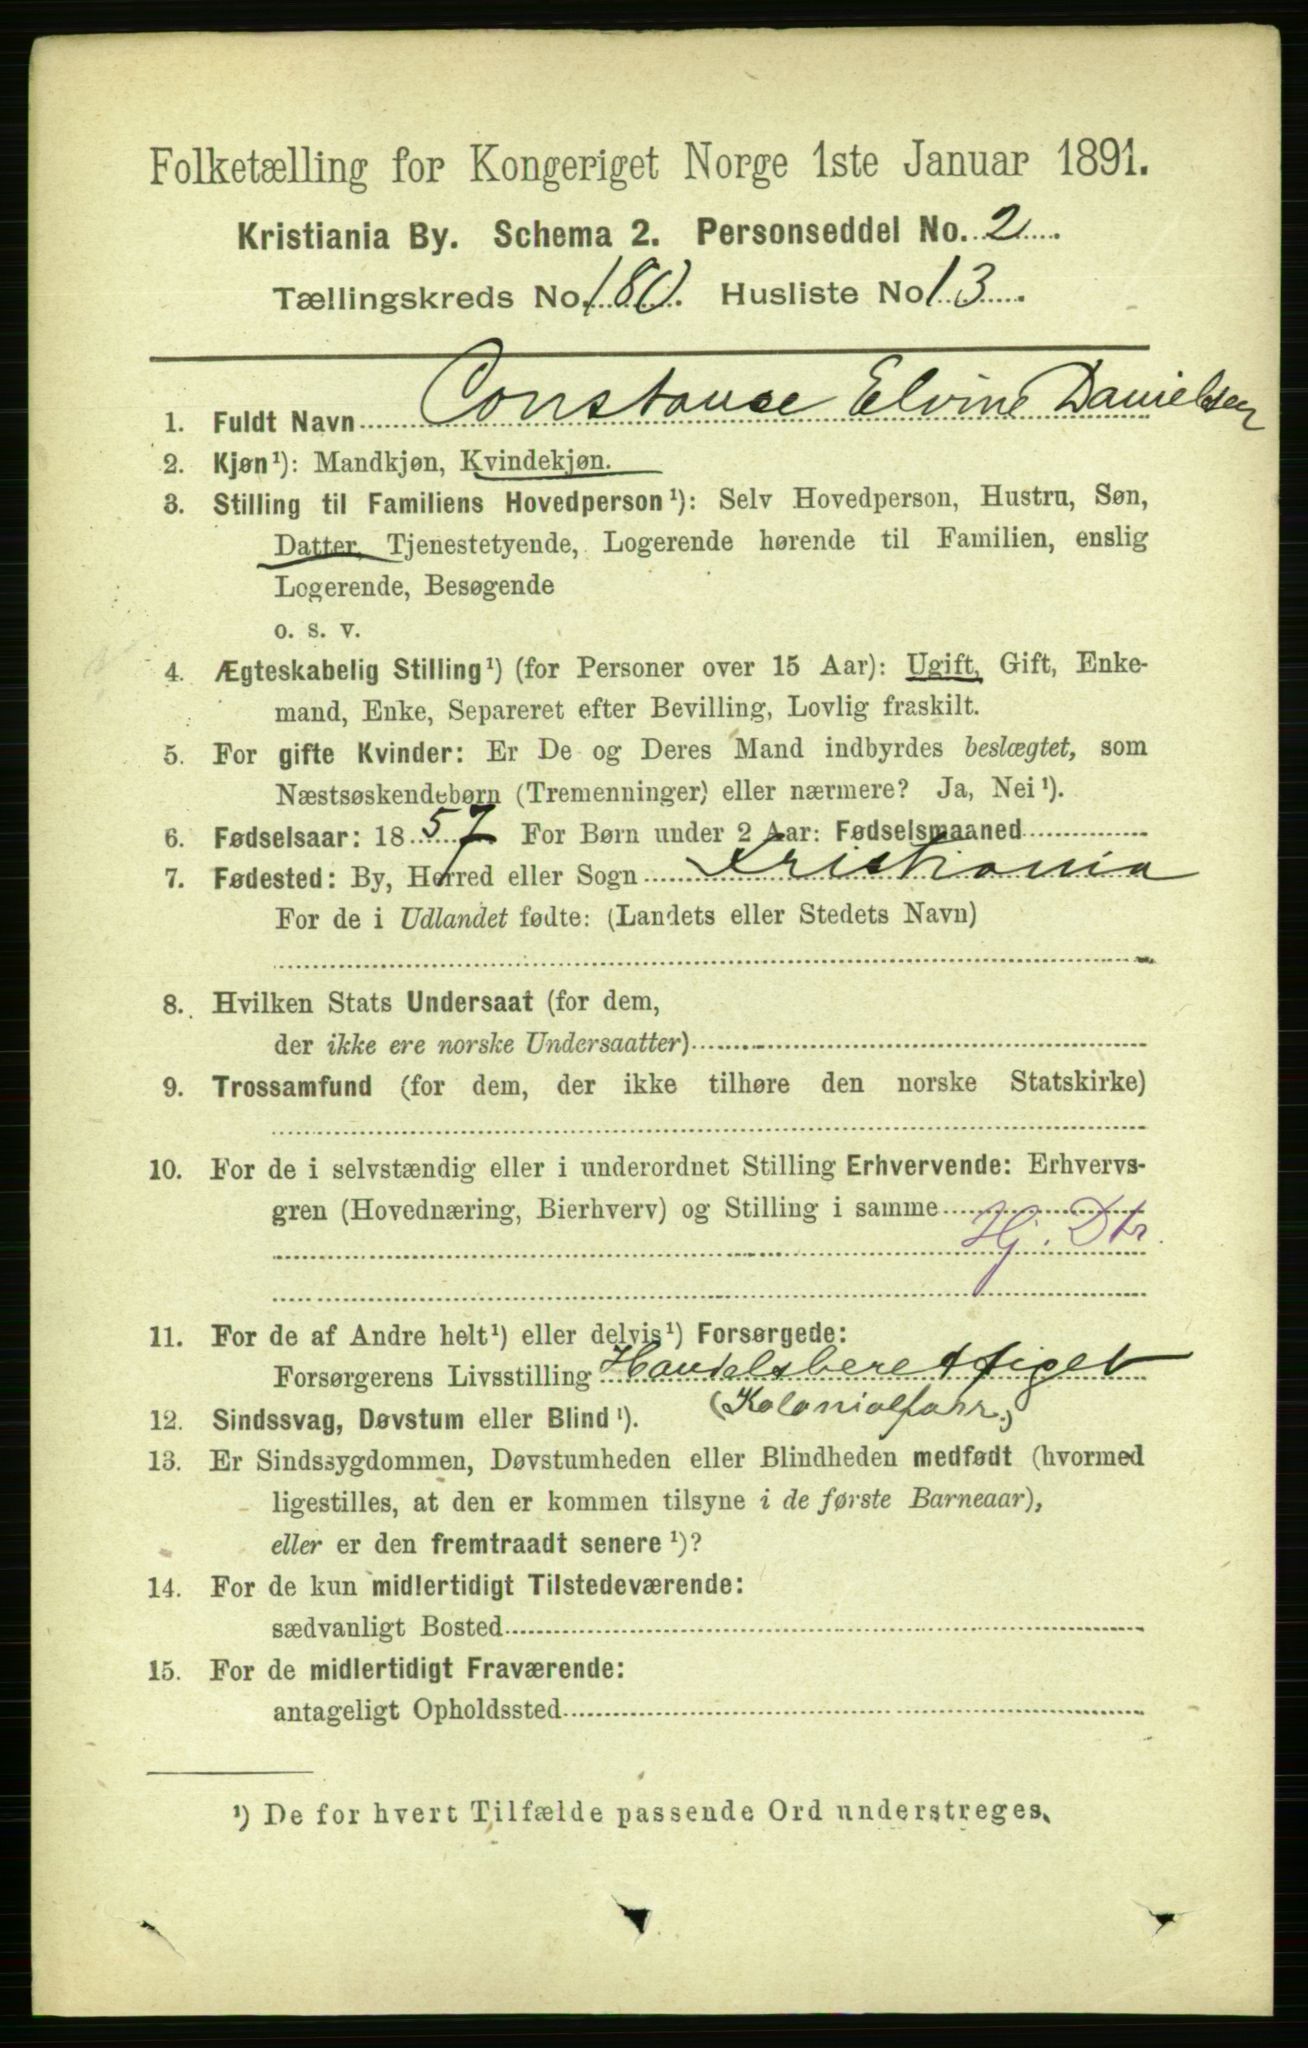 Folketælling for Kongeriget Norge 1ste Januar 1891.
Kristiania By. Schema 2. Personseddel No. 2
Tællingskreds No. 180. Husliste No 13
1. Fuldt Navn Constanse Elvine Danielsen
2. Kjøn¹): Mandkjøn, Kvindekjøn.
3. Stilling til Familiens Hovedperson¹): Selv Hovedperson, Hustru, Søn,
Datter, Tjenestetyende, Logerende hørende til Familien, enslig
Logerende, Besøgende
o. s. v.
4. Ægteskabelig Stilling¹) (for Personer over 15 Aar): Ugift, Gift, Enke-
mand, Enke, Separeret efter Bevilling, Lovlig fraskilt.
5. For gifte Kvinder: Er De og Deres Mand indbyrdes beslægtet, som
Næstsøskendebørn (Tremenninger) eller nærmere? Ja, Nei¹).
6. Fødselsaar: 1857 For Børn under 2 Aar: Fødselsmaaned
7. Fødested: By, Herred eller Sogn Kristiania
For de i Udlandet fødte: (Landets eller Stedets Navn)
8. Hvilken Stats Undersaat (for dem,
der ikke ere norske Undersaatter)
9. Trossamfund (for dem, der ikke tilhøre den norske Statskirke)
10. For de i selvstændig eller i underordnet Stilling Erhvervende: Erhvervs-
gren (Hovednæring, Bierhverv) og Stilling i samme
Hj. Dtr.
11. For de af Andre helt¹) eller delvis¹) Forsørgede:
Forsørgerens Livsstilling Handelsberettiget
(Kolonialforr.)
12. Sindssvag, Døvstum eller Blind¹).
13. Er Sindssygdommen, Døvstumheden eller Blindheden medfødt (hvormed
ligestilles, at den er kommen tilsyne i de første Barneaar),
eller er den fremtraadt senere¹)?
14. For de kun midlertidigt Tilstedeværende:
sædvanligt Bosted
15. For de midlertidigt Fraværende:
antageligt Opholdssted
¹) De for hvert Tilfælde passende Ord understreges.